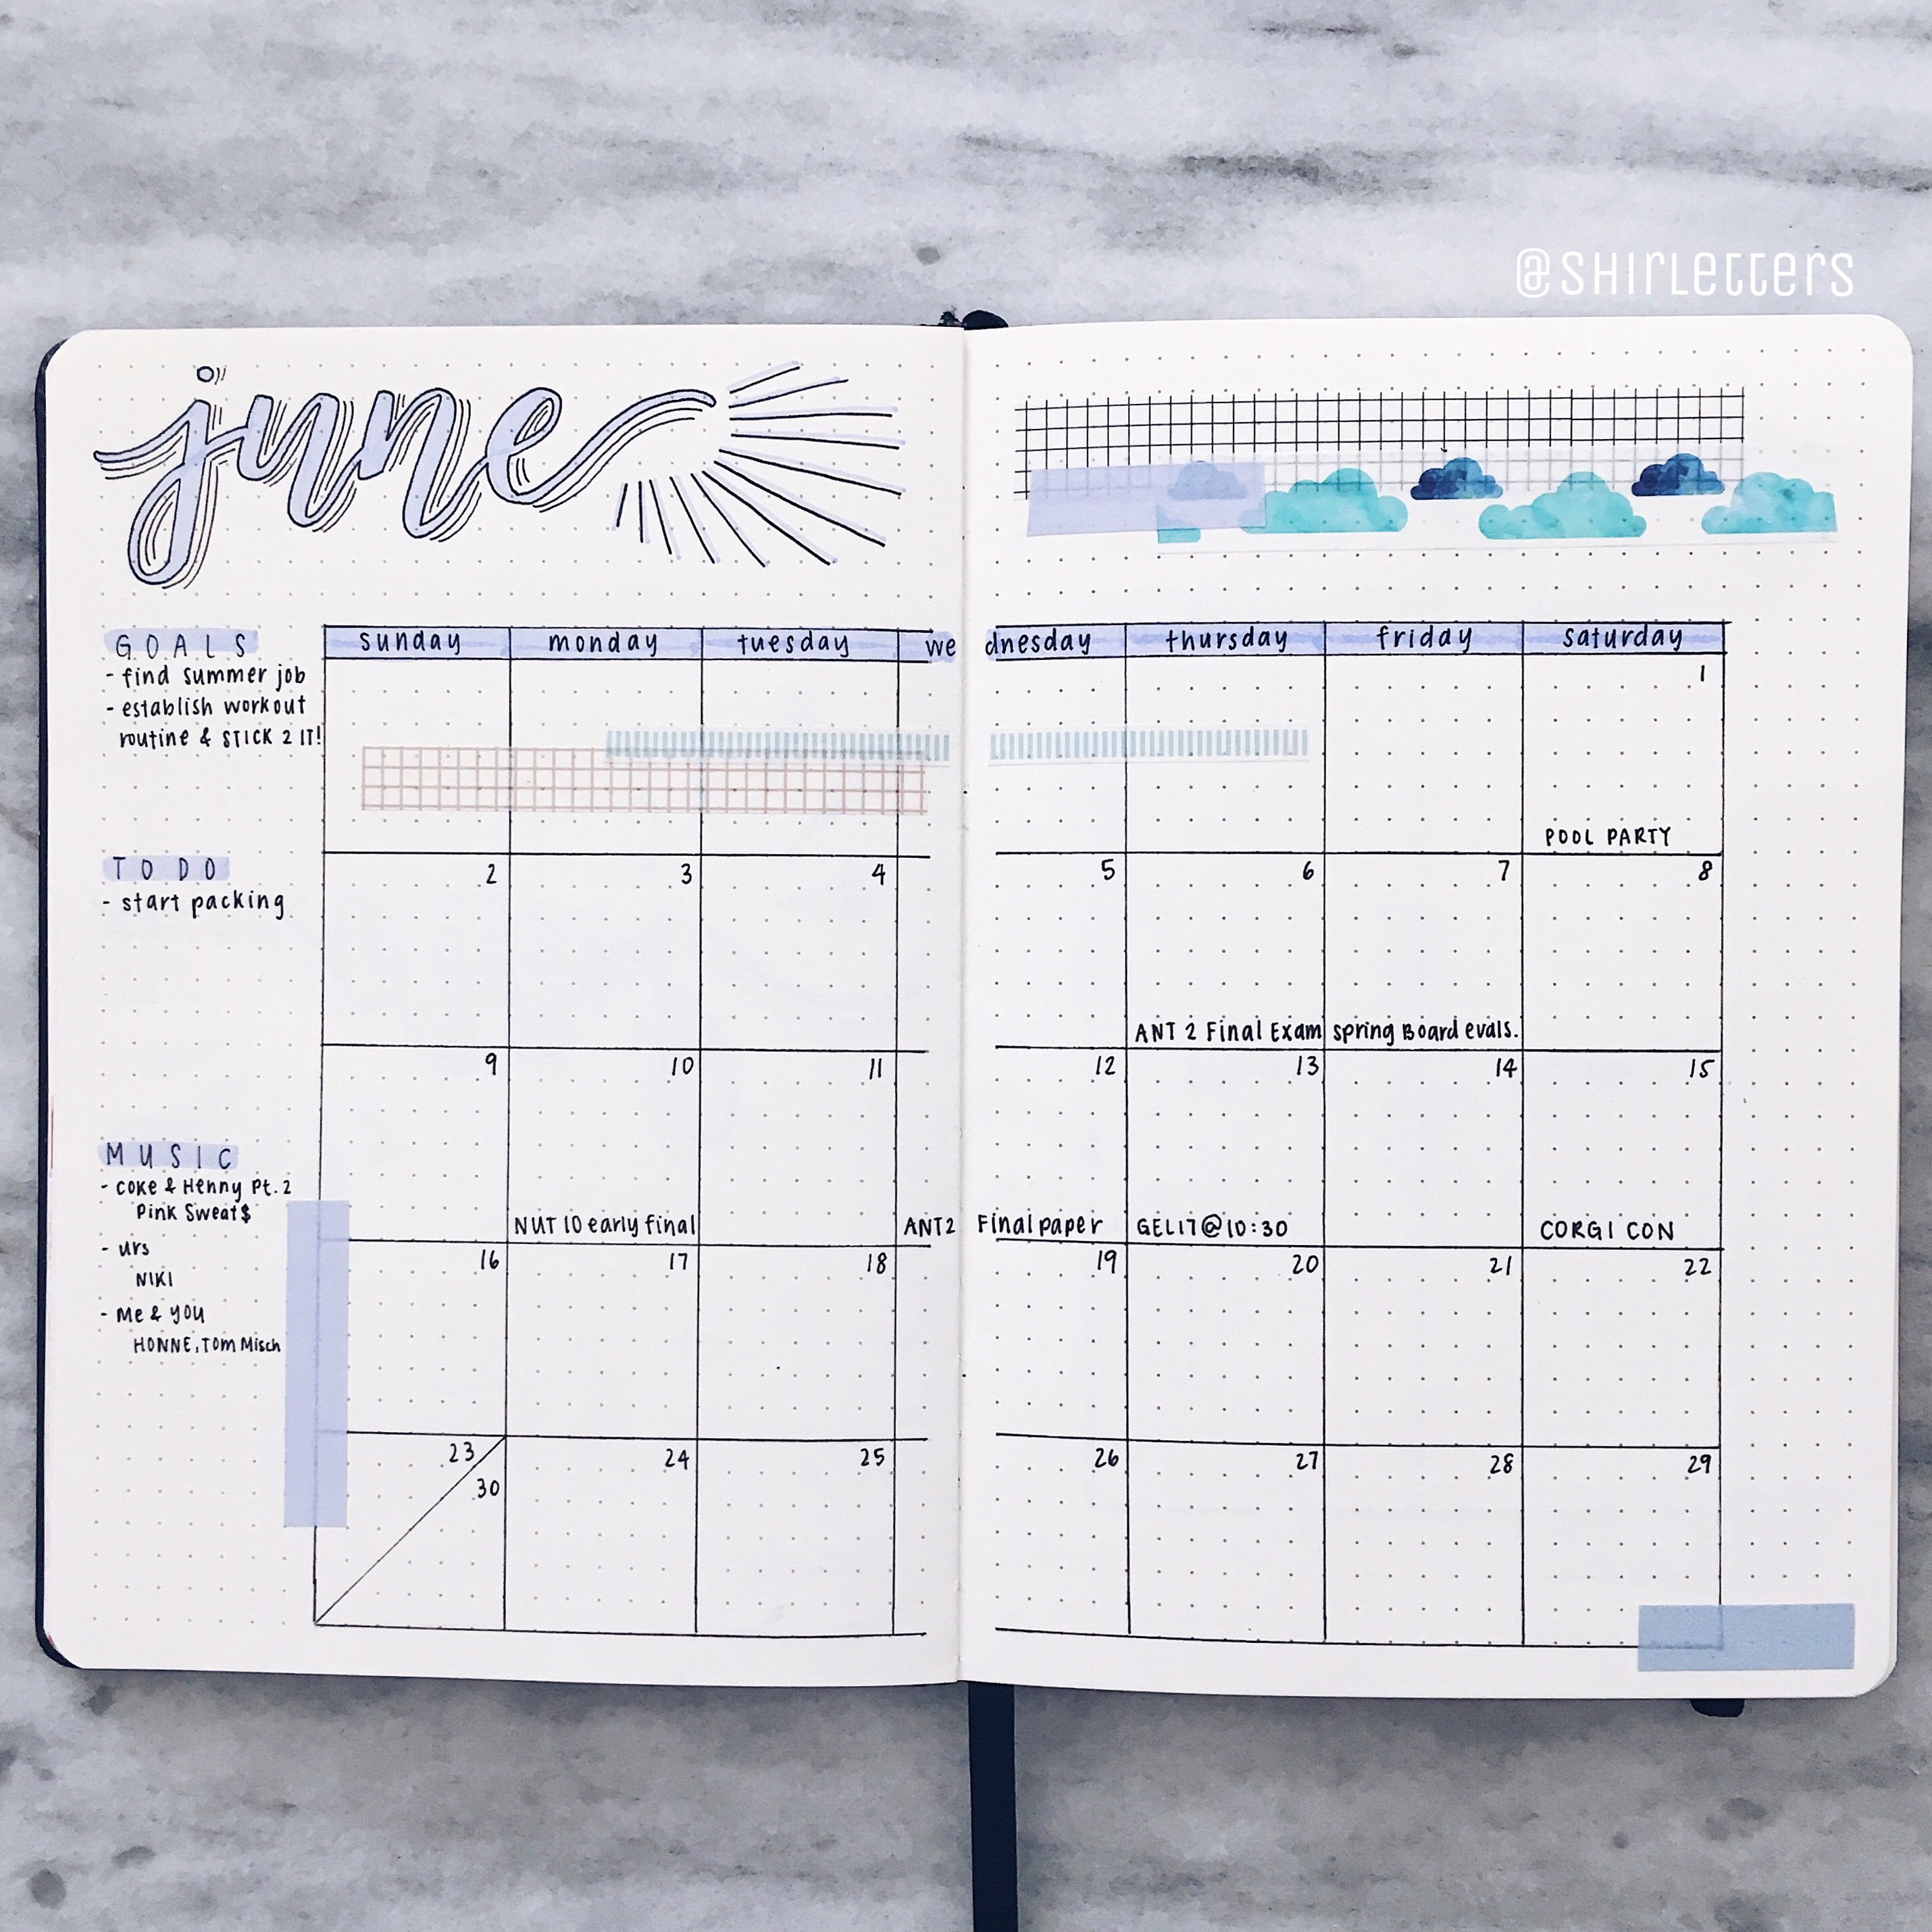 @SHIRLETTERS
june
GOALS
- find summer job
- establish workout
routine & STICK 2 IT!
TO DO
- start packing
MUSIC
- Coke & Henny Pt. 2
Pink Sweat$
- urs
NIKI
- Me & you
HONNE, Tom Misch
sunday monday tuesday wednesday thursday friday saturday
1
POOL PARTY
2 3 4 5 6 7 8
ANT 2 Final Exam spring Board evals.
9 10 11 12 13 14 15
NUT 10 early final ANT2 Final paper GEL17@10:30 CORGI CON
16 17 18 19 20 21 22
23 24 25 26 27 28 29
30